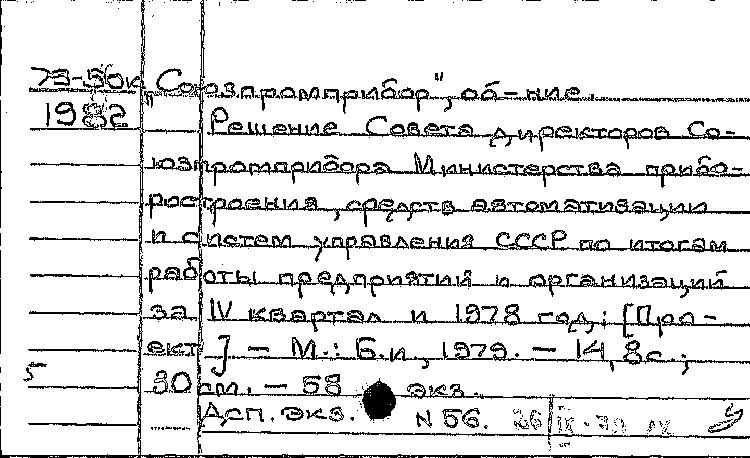 73-50к „Союзпромприбор", об-ние.
1982 Решение Совета директоров Со-
юзпромприбора Министерства прибо-
ростроения, средств автоматизации
и систем управления СССР по итогам
работы предприятий и организаций
за IV квартал и 1978 год: [Про-
ект] – М.: Б.и, 1979. – 14, 8с.;
5 30 см. – 58 экз.
Дсп. экз. N 56. 26/IX-79